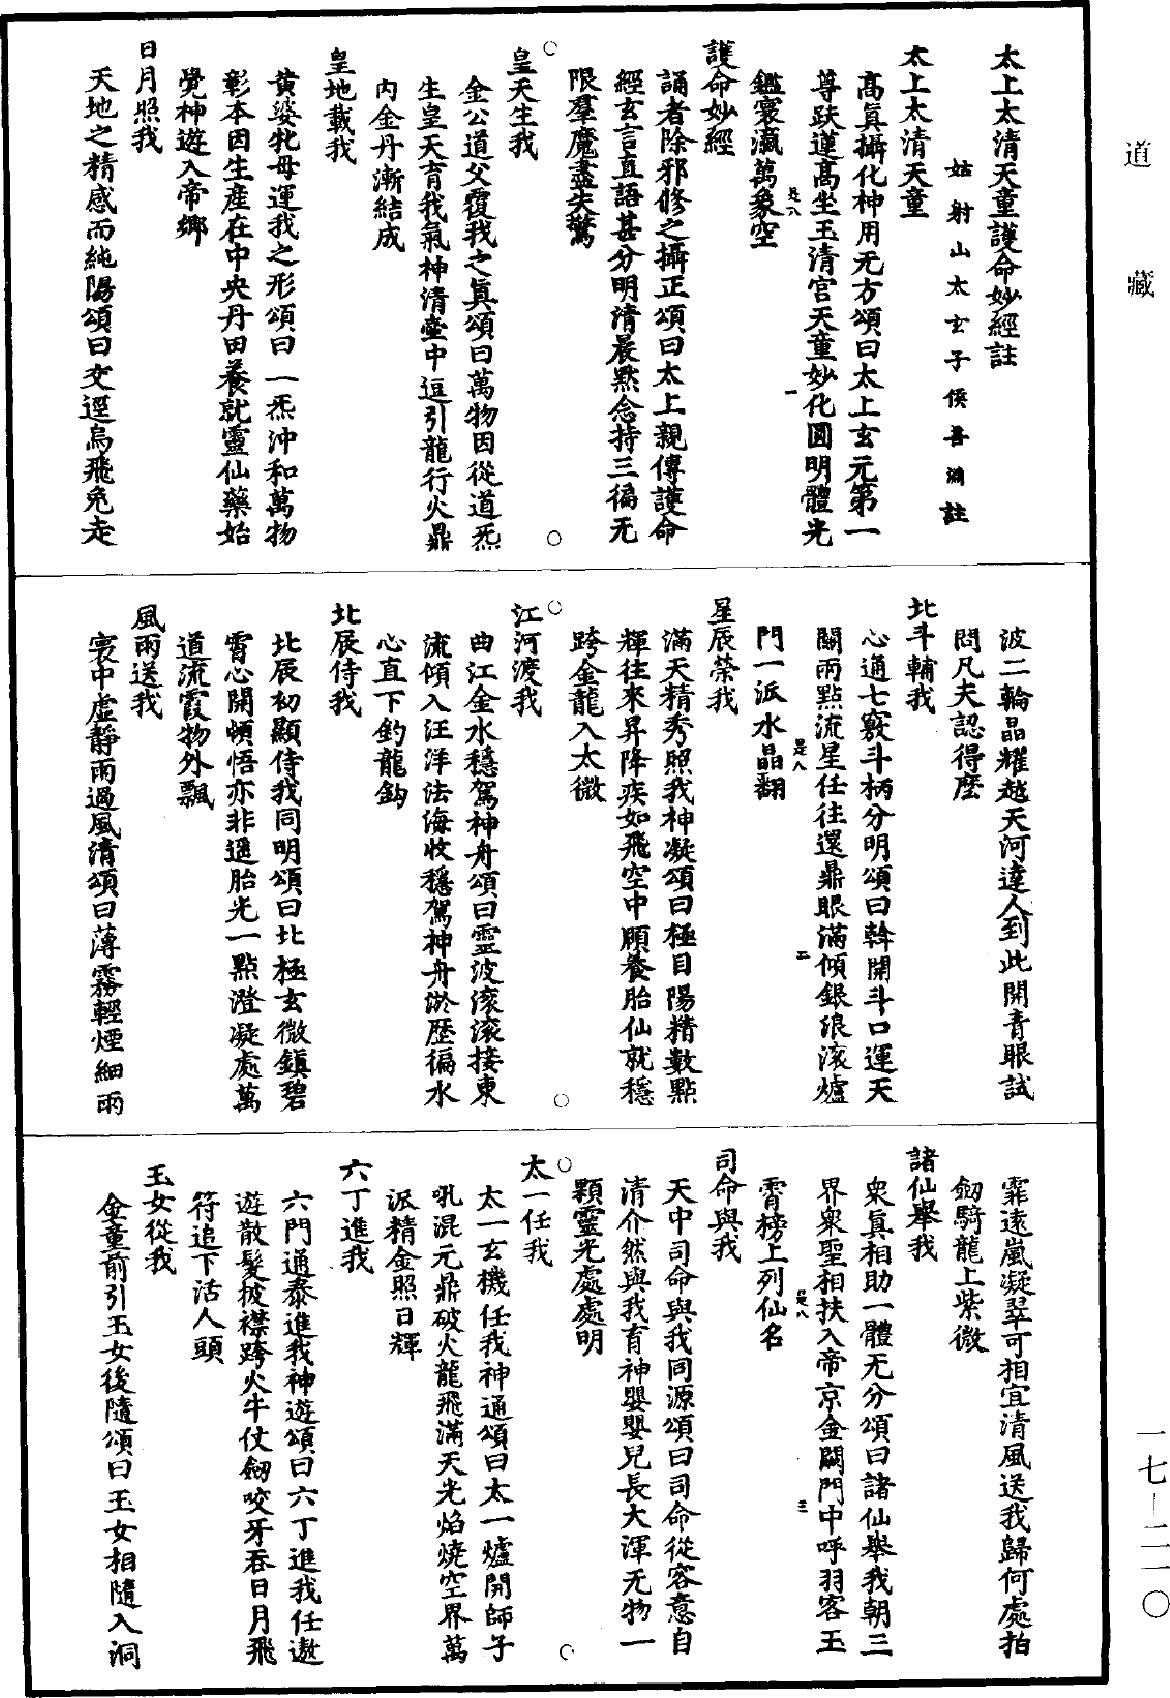 道藏
太上太清天童護命妙經註
姑射山太玄子侯善淵註
太上太清天童
高眞攝化神用无方頌曰太上玄元第一
尊趺蓮高坐玉清宮天童妙化圓明體光
鑑寰瀛萬象空
是八
一
護命妙經
誦者除邪修之攝正頌曰太上親傳護命
經玄言直語甚分明清晨黙念持三徧无
限羣魔盡失驚
皇天生我
金公道父覆我之眞頌曰萬物因從道炁
生皇天育我氣神清壷中逗引龍行火鼎
内金丹漸結成
皇地載我
黄婆牝母運我之形頌曰一炁沖和萬物
彰本因生產在中央丹田養就靈仙藥始
覺神遊入帝鄉
日月照我
天地之精感而純陽頌曰交逕烏飛兔走
波二輪晶耀越天河達人到此開青眼試
問凡夫認得麽
北斗輔我
心通七竅斗柄分明頌曰斡開斗口運天
關兩點流星任往還鼎眼滿傾銀浪滾爐
門一派水晶翻
是八
二
星辰榮我
滿天精秀照我神凝頌曰極目陽精數點
輝往來昇降疾如飛空中願養胎仙就穩
跨金龍入太微
江河渡我
曲江金水穩駕神舟頌曰靈波滚滚接東
流傾入汪洋法海收穩駕神舟游歷徧水
心直下釣龍鈎
北辰侍我
北辰初顯侍我同明頌曰北極玄微鎮碧
霄心開頓悟亦非遥胎光一點澄凝處萬
道流霞物外飄
風雨送我
寰中虛靜雨過風清頌曰薄霧輕煙細雨
霏遠嵐凝翠可相宜清風送我歸何處拍
劒騎龍上紫微
諸仙舉我
衆眞相助一體无分頌曰諸仙舉我朝三
界衆聖相扶入帝京金闕門中呼羽客玉
霄榜上列仙名
是八
三
司命與我
天中司命與我同源頌曰司命從容意自
清介然與我育神嬰嬰兒長大渾无物一
顆靈光處處明
太一任我
太一玄機任我神通頌曰太一爐開師子
吼混元鼎破火龍飛滿天光焰燒空界萬
派精金照日輝
六丁進我
六門通泰進我神遊頌曰六丁進我任遨
遊散髮披襟跨火牛仗劒咬牙吞日月飛
符追下活人頭
玉女從我
金童前引玉女後隨頌曰玉女相隨入洞
一七—二一〇